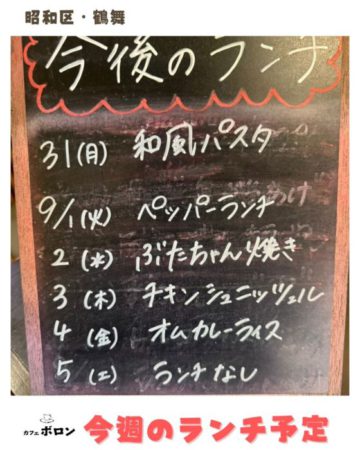 昭和区・鶴舞
今後のランチ
31(月) 和風パスタ
9/1(火) ペッパーランチ
2(水) ぶたちゃん焼き
3(木) チキンシュニッツェル
4(金) オムカレーライス
5(土) ランチなし
カフェ ボロン 今週のランチ予定